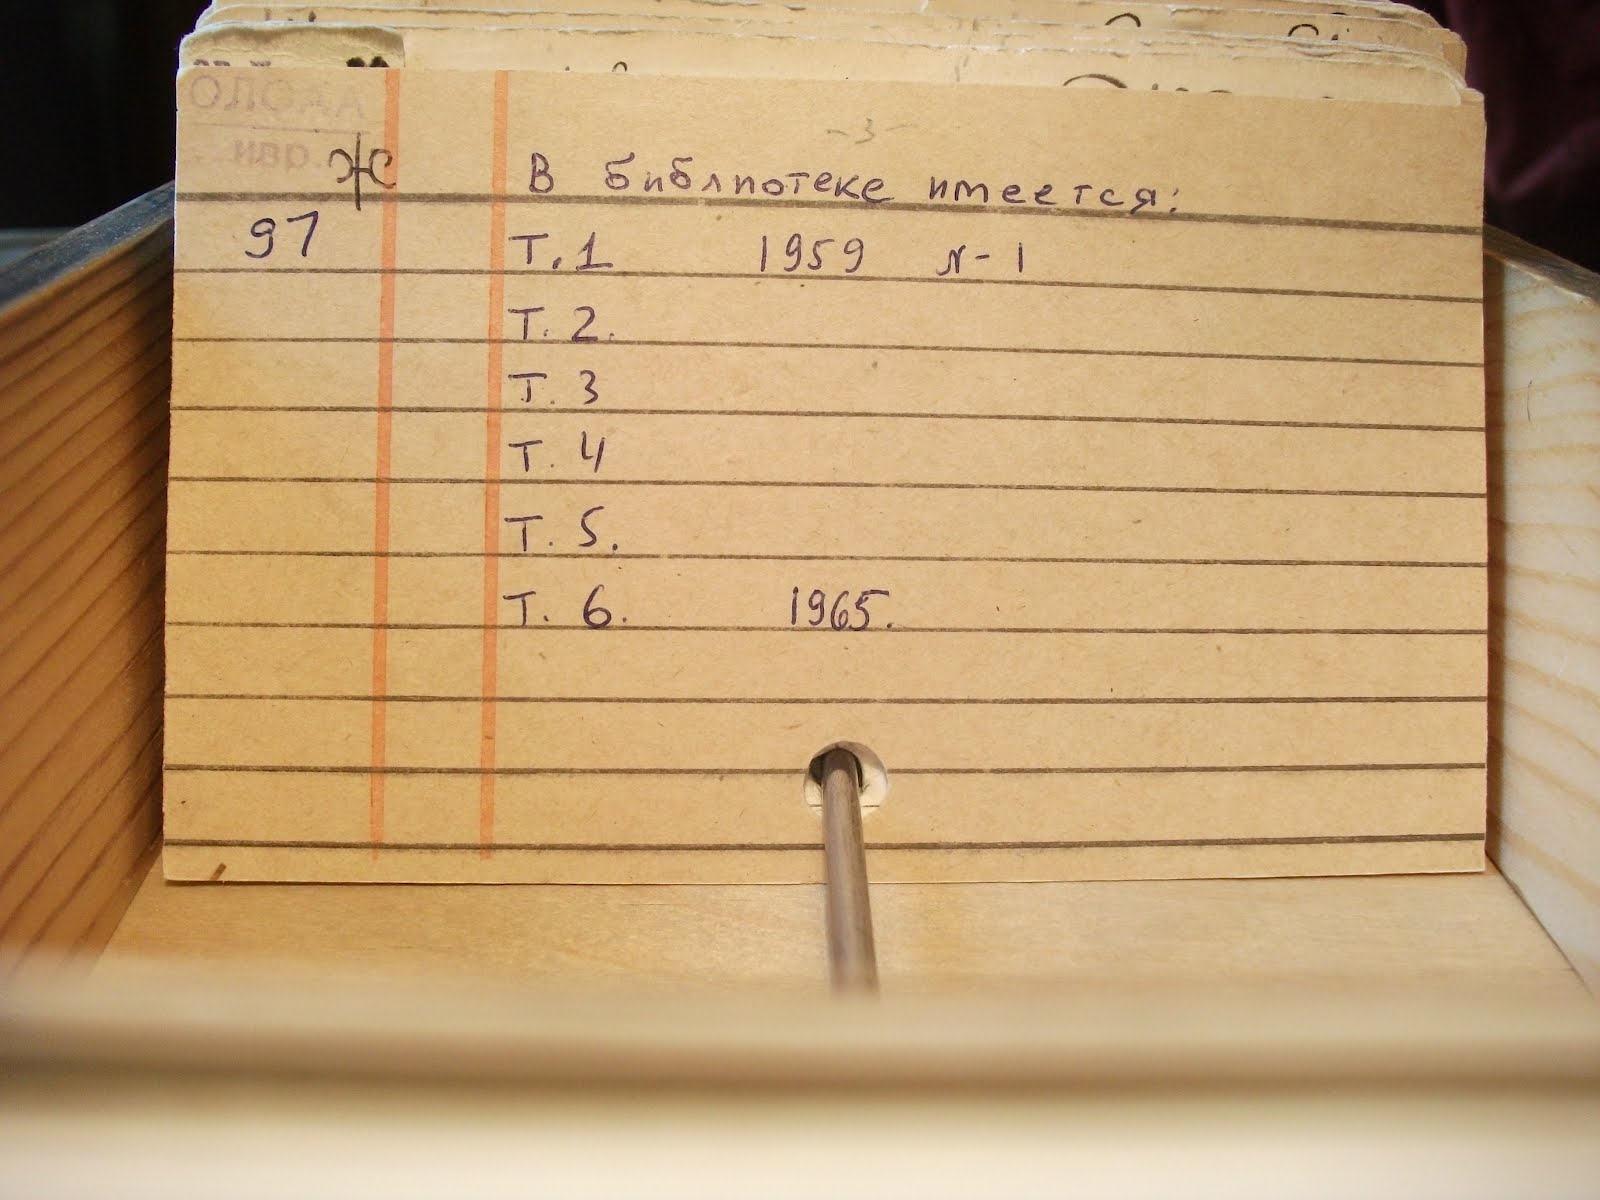 - 3 -
Ж
В библиотеке имеется:
97
Т. 1 1959 N - 1
Т. 2.
Т. 3
Т. 4
Т. 5.
Т. 6. 1965.